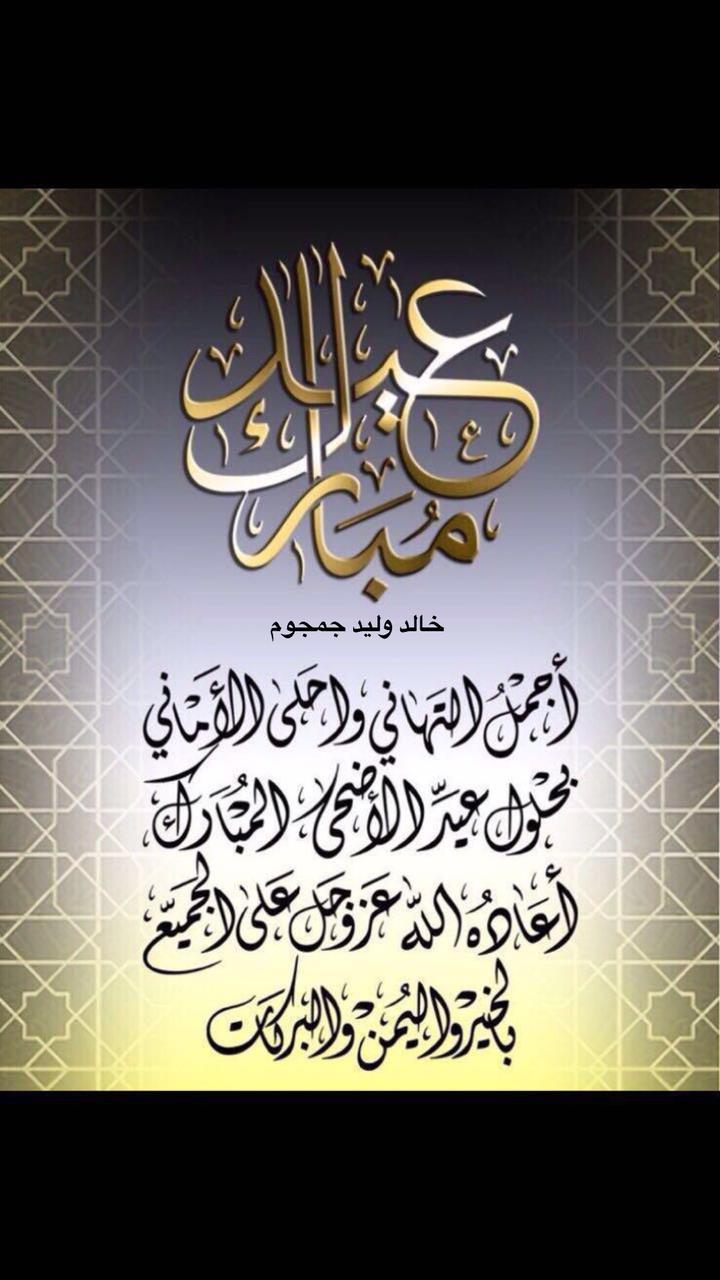 عيد
مُبارك
خالد وليد جمجوم
أجملُ التهاني واحلى الأماني
بحلول عيد الأضحى المبارك
أعاده الله عز وجل على الجميع
بالخير واليمن والبركات